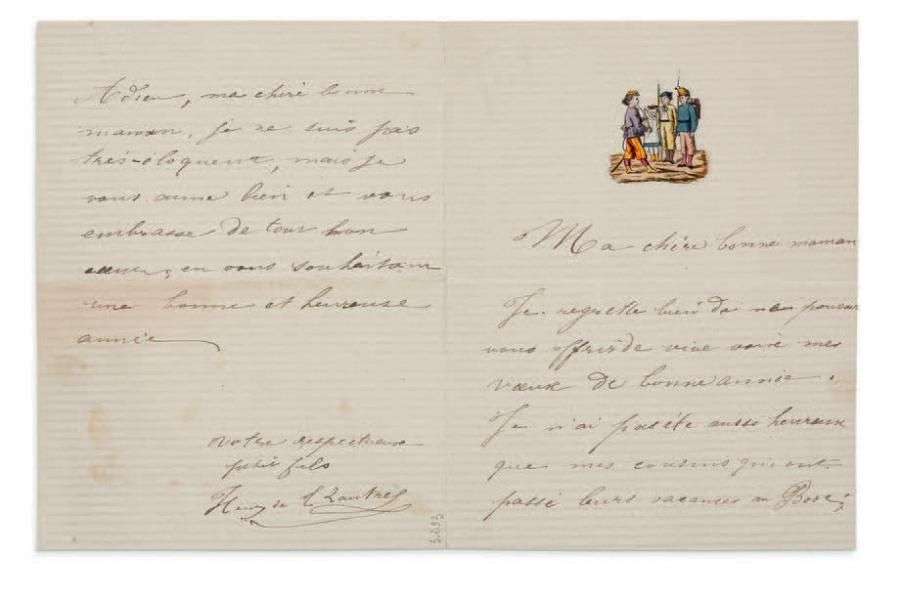 Ma chère bonne maman
Je regrette bien de ne pouvoir
vous offrir de vive voix mes
vœux de bonne année.
Je n'ai pas été aussi heureux
que mes cousins qui ont
passé leurs vacances au Bosc;
Adieu, ma chère bonne
maman, je ne suis pas
très-éloquent, mais je
vous aime bien et vous
embrasse de tout bon
cœur, en vous souhaitant
une bonne et heureuse
année
votre respectueux
petit fils
Henry de T. Lautrec